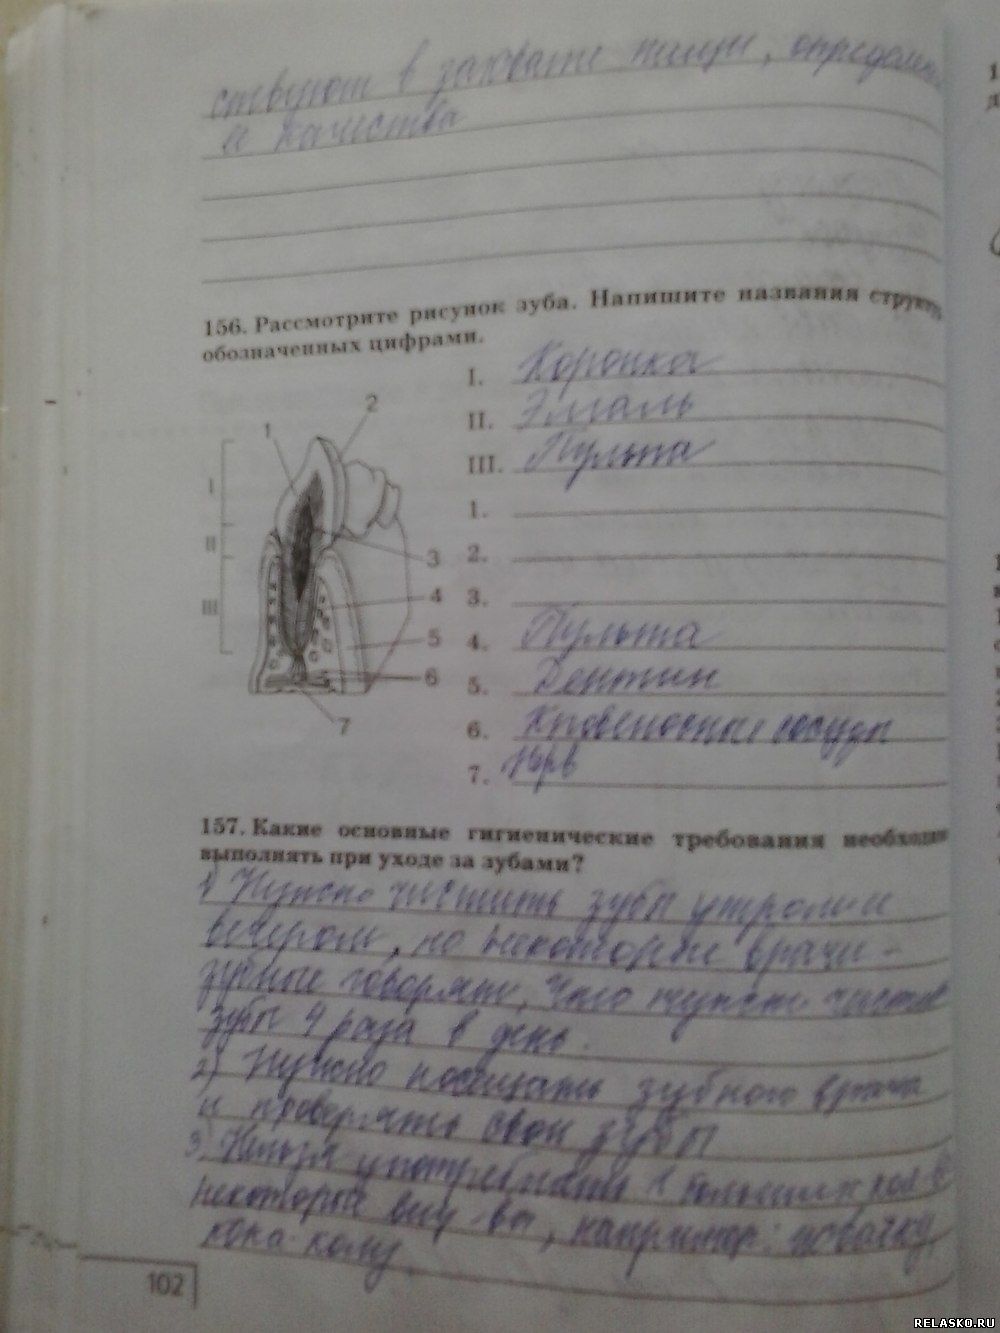 ствуют в захвате пищи, определ
и качества
156. Рассмотрите рисунок зуба. Напишите названия структур
обозначенных цифрами.
I. Коронка
II. Эмаль
III. Пульпа
1.
2.
3.
4. Пульпа
5. Дентин
6. Кровеносные сосуды
7. Нрв
1
2
I
II
III
3
4
5
6
7
157. Какие основные гигиенические требования необходимо
выполнять при уходе за зубами?
1) Нужно чистить зубы утром и
вечером, но некоторые врачи-
зубные говорят, что нужно чистить
зубы 4 раза в день.
2) Нужно посещать зубного врача
и проверять свои зубы
3) Нельзя употреблять в большом кол-ве
некоторые вещ-ва, например:
кока-колу.
102
1
д
RELASKO.RU